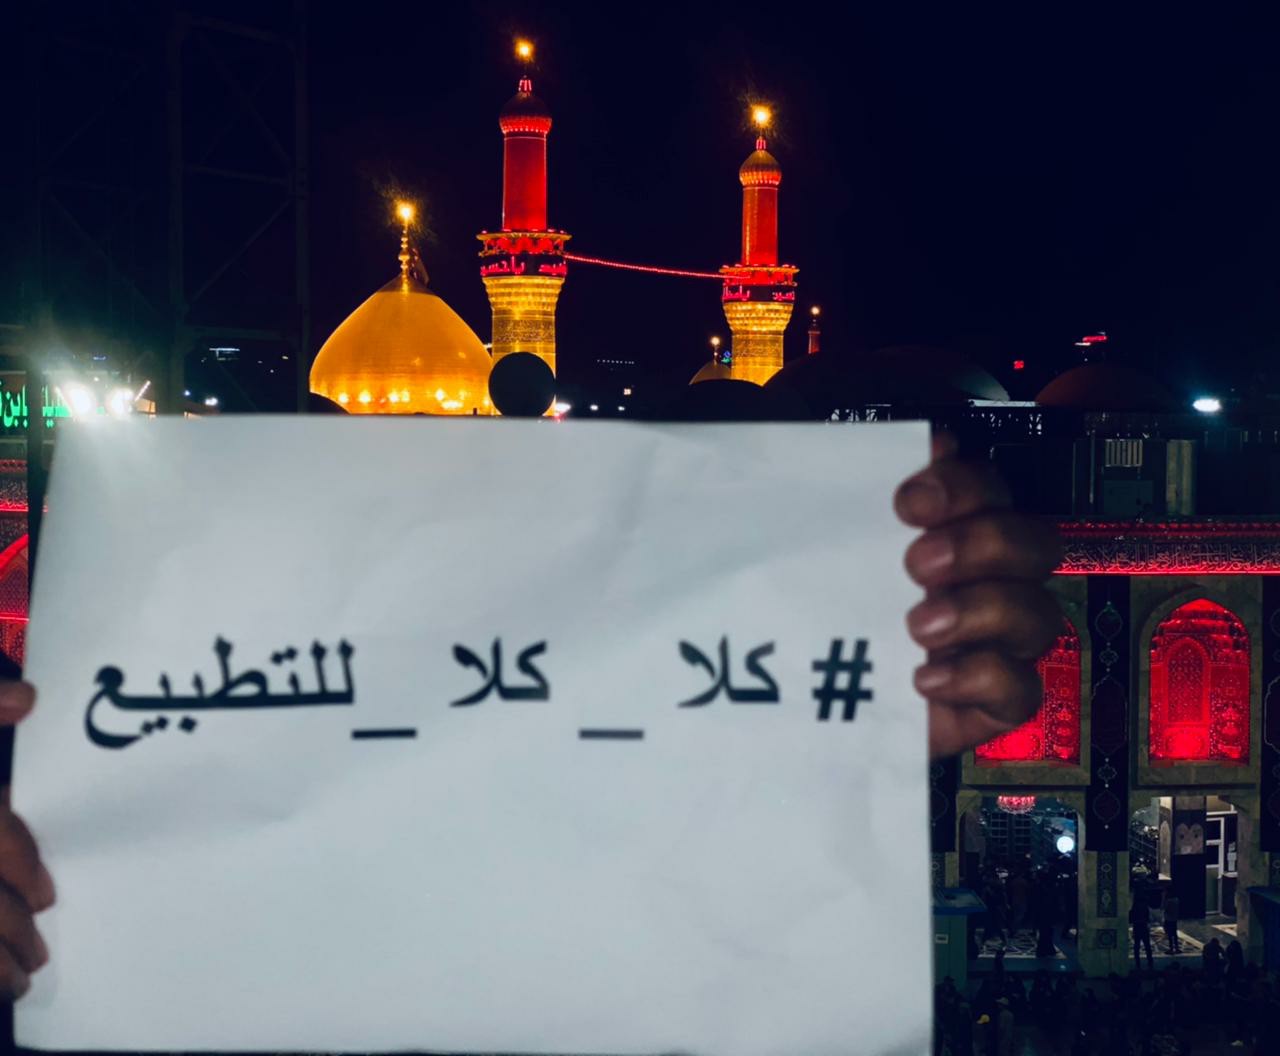 #كلا_كلا_للتطبيع